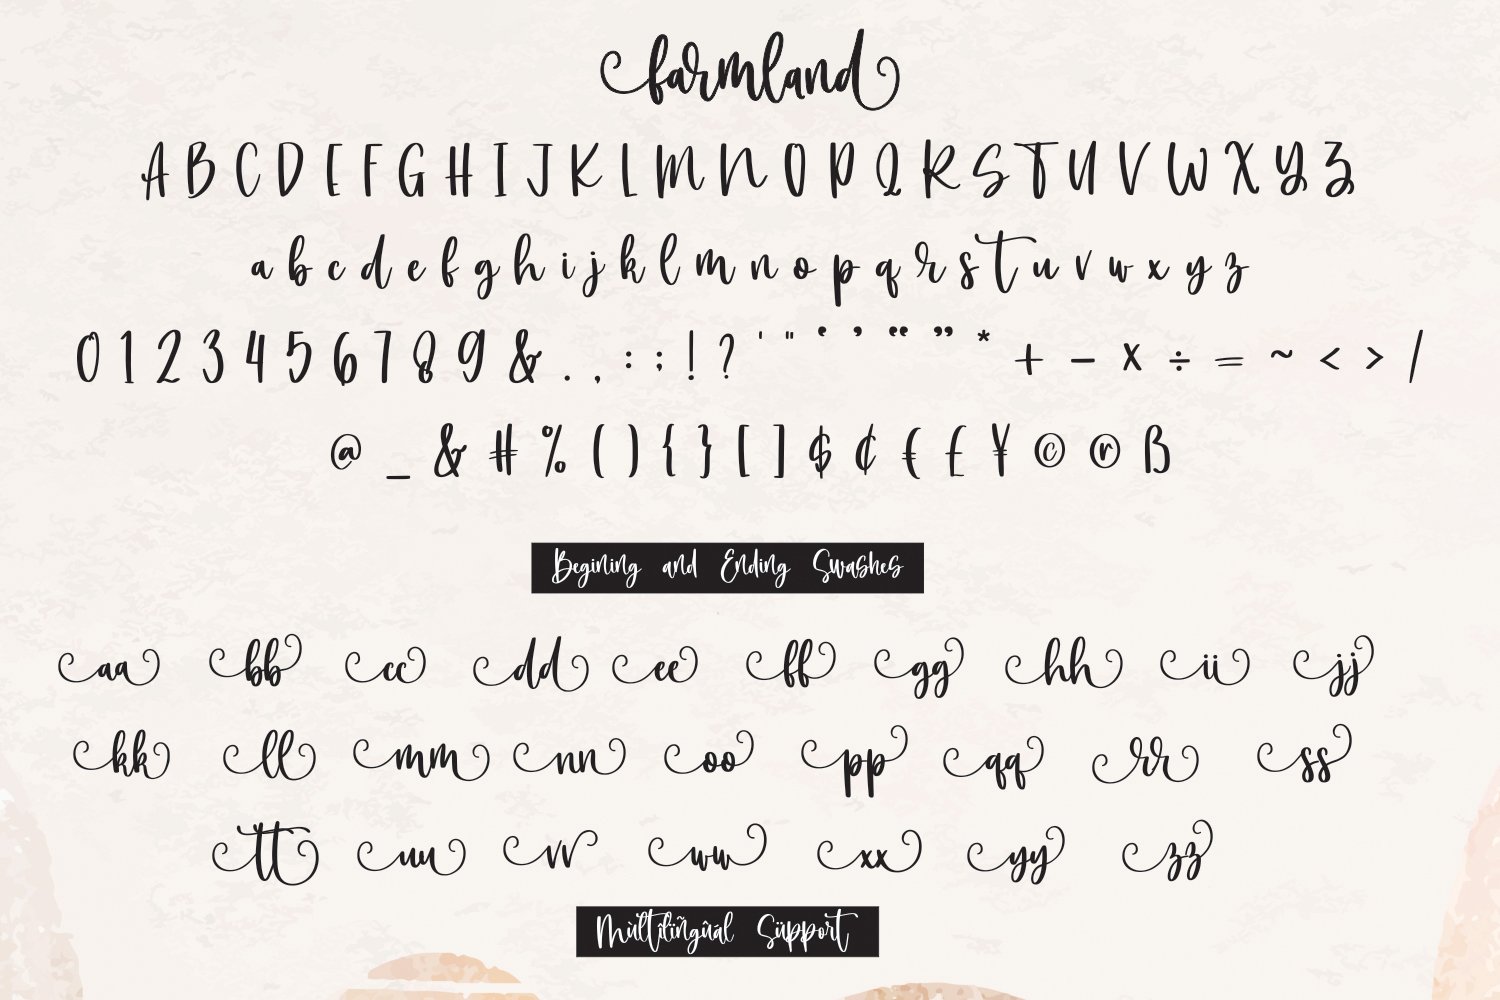 farmland
A B C D E F G H I J K L M N O P Q R S T U V W X Y Z
a b c d e f g h i j k l m n o p q r s t u v w x y z
0 1 2 3 4 5 6 7 8 9 & . , : ; ! ? ' " ‘ ’ “ ” * + - × ÷ = ~ < > /
@ _ & # % ( ) { } [ ] $ ¢ € £ ¥ © ® ß
Begining and Ending Swashes
aa bb cc dd ee ff gg hh ii jj
kk ll mm nn oo pp qq rr ss
tt uu vv ww xx yy zz
Mùltîlïngûál Süppört